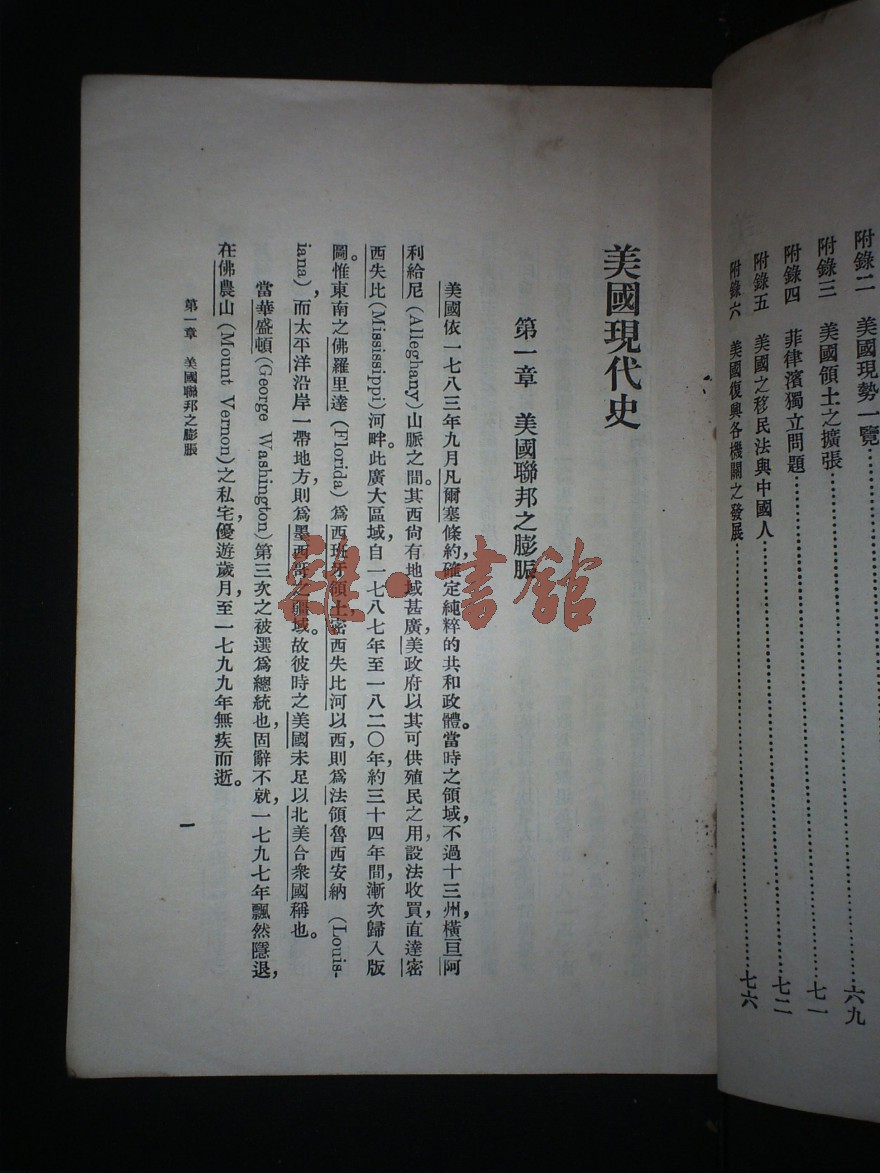 附錄二　美國現勢一覽……六九
附錄三　美國領土之擴張……七一
附錄四　菲律濱獨立問題……七二
附錄五　美國之移民法與中國人
附錄六　美國復興各機關之發展……七六
美國現代史
第一章　美國聯邦之膨脹
美國依一七八三年九月凡爾塞條約，確定純粹的共和政體。當時之領域，不過十三州，橫亘阿
利給尼(Alleghany)山脈之間。其西尙有地域甚廣，美政府以其可供殖民之用，設法收買，直達密
西失比(Mississippi)河畔。此廣大區域，自一七八七年至一八二〇年，約三十四年間，漸次歸入版
圖。惟東南之佛羅里達(Florida)爲西班牙領土，密西失比河以西，則爲法領魯西安納(Louis-
iana)，而太平洋沿岸一帶地方，則爲墨西哥之疆域。故彼時之美國未足以北美合衆國稱也。
當華盛頓(George Washington)第三次之被選爲總統也，固辭不就，一七九七年飄然隱退，
在佛農山(Mount Vernon)之私宅，優遊歲月，至一七九九年無疾而逝。
第一章　美國聯邦之膨脹
一
雜·書館